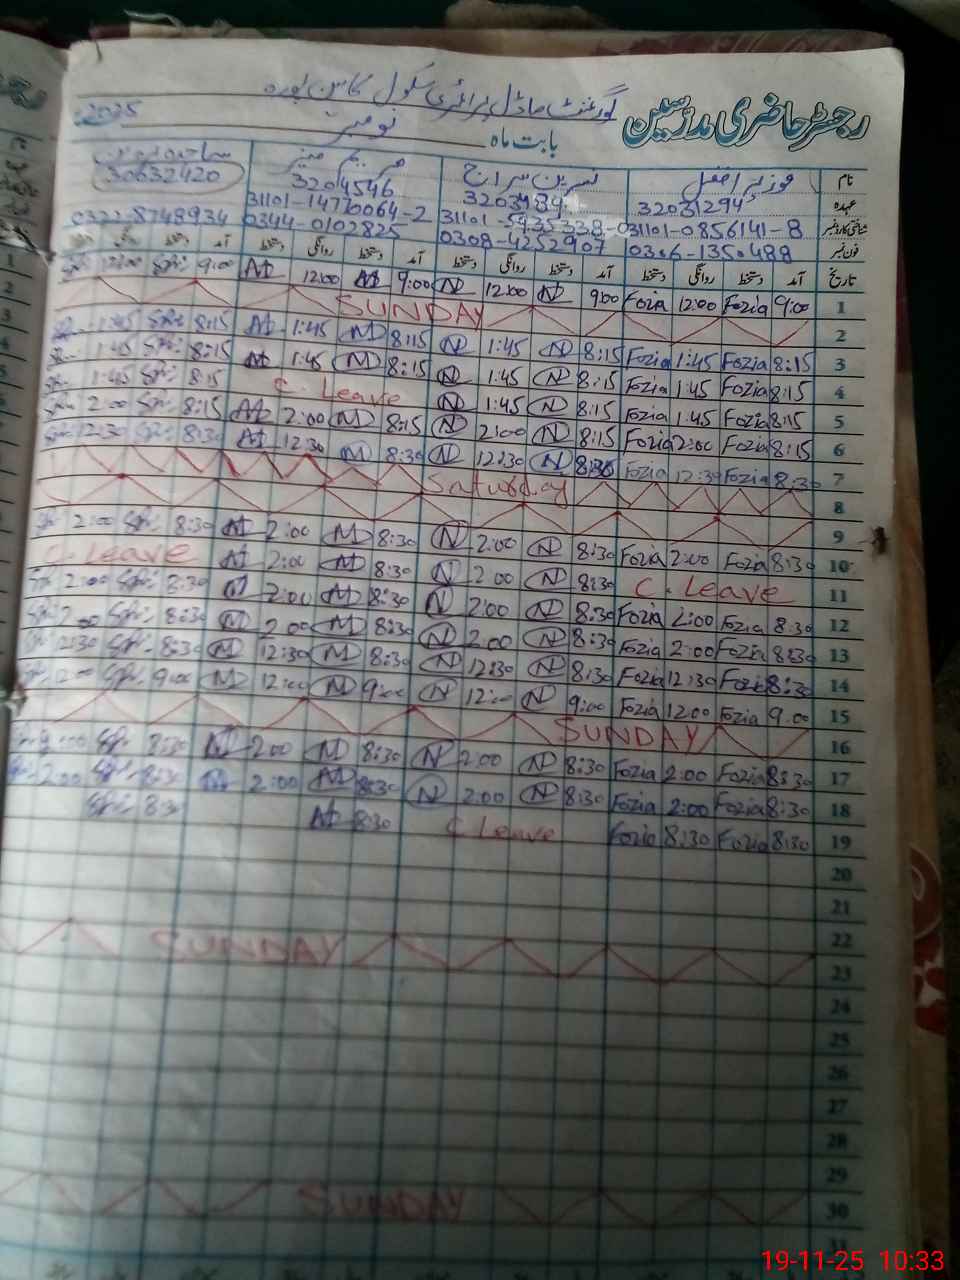 رجسٹر حاضری مدرسین
گورنمنٹ ماڈل پرائمری سکول
بابت ماہ نومبر 2025
نام فوزیہ افضل نسرین سراج مریم منیر
عہدہ 32031294 3204546 30632420
شناختی کارڈ نمبر 31101-0856141-8 31101-5435338-0 31101-14770064-2
فون نمبر 0306-1350488 0308-4252907 0344-0102825 0322-8748934
تاریخ آمد دستخط روانگی دستخط آمد دستخط روانگی دستخط آمد دستخط روانگی دستخط آمد دستخط روانگی دستخط
1 9:00 Fozia 12:00 Fozia 9:00 N 12:00 N 9:00 M 12:00 M 9:00 12:00
2 SUNDAY
3 8:15 Fozia 1:45 Fozia 8:15 N 1:45 N 8:15 M 1:45 M 8:15 1:45
4 8:15 Fozia 1:45 Fozia 8:15 N 1:45 N 8:15 M 1:45 M 8:15 1:45
5 8:15 Fozia 1:45 Fozia 8:15 N 1:45 N C. Leave 8:15 1:45
6 8:15 Fozia 2:00 Fozia 8:15 N 2:00 N 8:15 M 2:00 M 8:15 2:00
7 8:30 Fozia 12:30 Fozia 8:30 N 12:30 N 8:30 M 12:30 M 8:30 12:30
8 Saturday
9
10 8:30 Fozia 2:00 Fozia 8:30 N 2:00 N 8:30 M 2:00 M 8:30 2:00
11 C. Leave 8:30 N 2:00 N 8:30 M 2:00 M C. Leave
12 8:30 Fozia 2:00 Fozia 8:30 N 2:00 N 8:30 M 2:00 M 8:30 2:00
13 8:30 Fozia 2:00 Fozia 8:30 N 2:00 N 8:30 M 2:00 M 8:30 2:00
14 8:30 Fozia 12:30 Fozia 8:30 N 12:30 N 8:30 M 12:30 M 8:30 12:30
15 9:00 Fozia 12:00 Fozia 9:00 N 12:00 N 9:00 M 12:00 M 9:00 12:00
16 SUNDAY
17 8:30 Fozia 2:00 Fozia 8:30 N 2:00 N 8:30 M 2:00 M 8:30 2:00
18 8:30 Fozia 2:00 Fozia 8:30 N 2:00 N 8:30 M 2:00 M 8:30 2:00
19 8:30 Fozia 8:30 Fozia C Leave 8:30 M 8:30
20
21
22
23 SUNDAY
24
25
26
27
28
29
30 SUNDAY
31
19-11-25 10:33